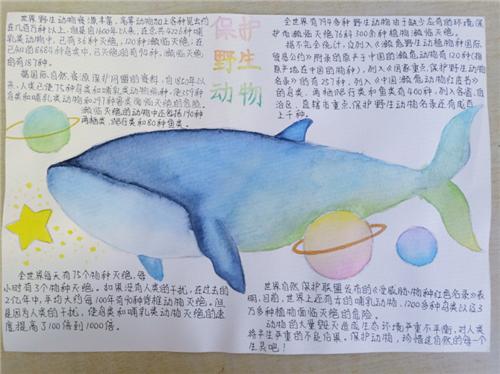 保护
野生
动物
世界野生动物资源丰富,鸟兽动物加上各种昆虫约
在几百万种以上,但是自1600年以来,在总共4226种哺
乳类动物中,已有36种灭绝,120种濒临灭绝,在
已知的8684种鸟类中,已灭绝的有94种,濒临灭绝
的有187种。
据国际自然资源保护同盟的资料,自1850年以
来,人类已使75种鸟类和哺乳类动物绝种,使359种
鸟类和哺乳类动物和297种兽类面临灭绝的危险。
濒临灭绝的动物中还包括190种
两栖类、爬行类和80种鱼类。
全世界有794多种野生动物由于缺少应有的环境保
护而濒临灭绝
据不完全统计,列入《濒危野生动植物种国际
贸易公约》附录的原产于中国的濒危动物有120种(指
原产地在中国的物种),列入《国家重点保护野生动物
名录》的有257种,列入《中国濒危动物红皮书》
的鸟类、两栖爬行类和鱼类有400种,列入各省、自
治区、直辖市重点保护野生动物名录还有成百
上千种。
全世界每天有75个物种灭绝,每
小时有3个物种灭绝。如果没有人类的干扰,在过去的
2亿年中,平均大约每100年有90种脊椎动物灭绝,但
是因为人类的干扰,使鸟类和哺乳类动物灭绝的速
度提高了100倍到1000倍。
世界自然保护联盟发布的《受威胁物种红色名录》表
明,目前,世界上还有
的哺乳动物,1200多种鸟类以及3
万多种植物面临灭绝的危险。
动物的大量毁灭造成生态环境严重不平衡,对人类
将产生严重的不良结果。保护动物,珍惜这自然的每一个
生灵吧!